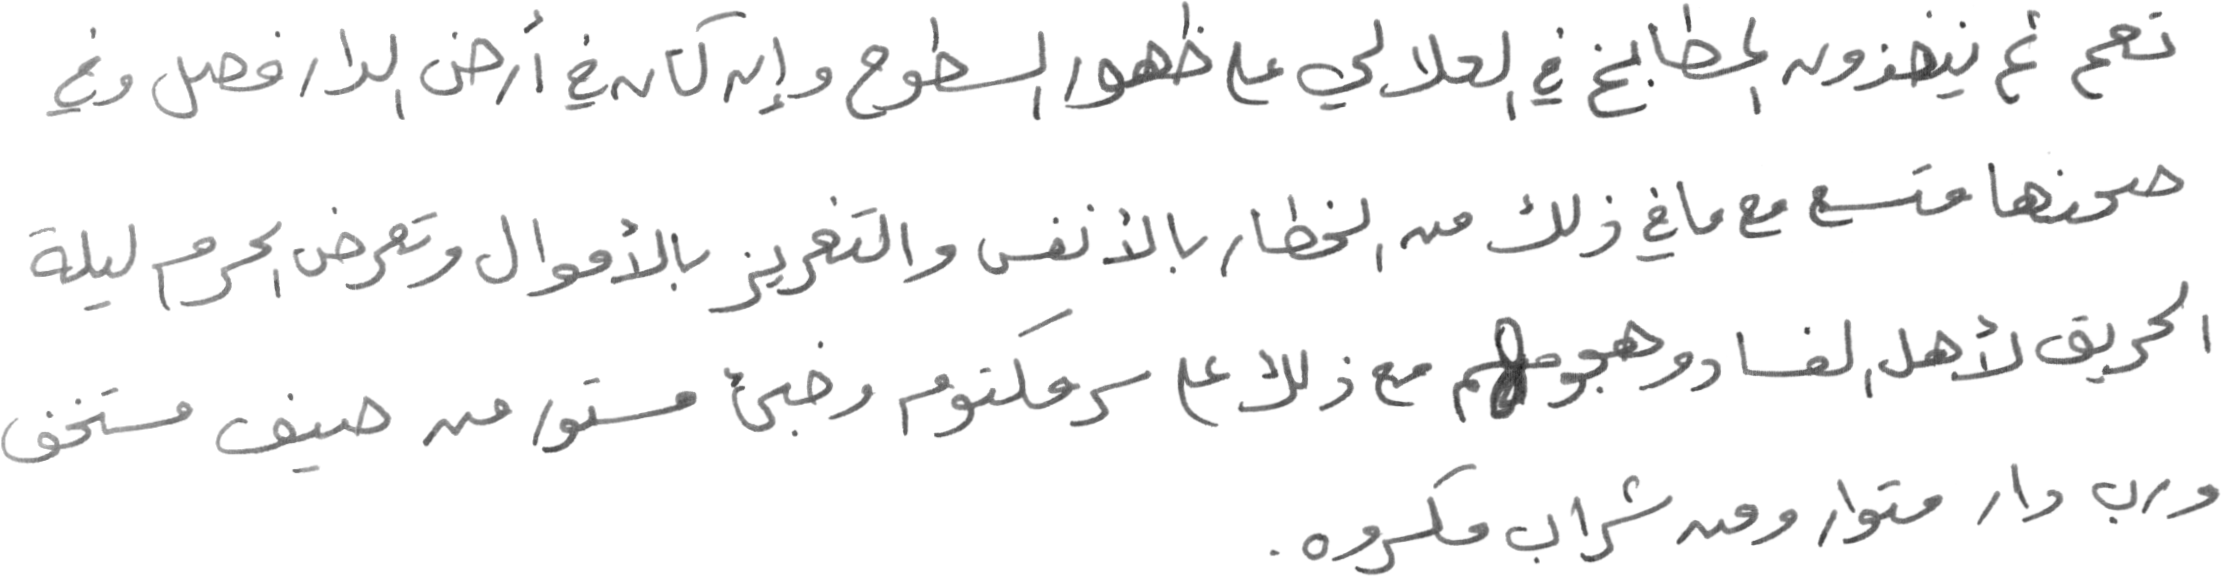 تعم ثم يتخذون المطابخ في العلالي على ظهور السطوح وإن كان في أرض الدار فضل وفي
صحنها متسع مع ما في ذلك من الخطار بالأنفس والتغرير بالأموال وتعرض الحرم ليلة
الحريق لأهل الفساد وهجومهم مع ذلك على سر مكتوم وخبئ مستور من ضيف مستخف
ورب دار متوار ومن شراب مكروه.